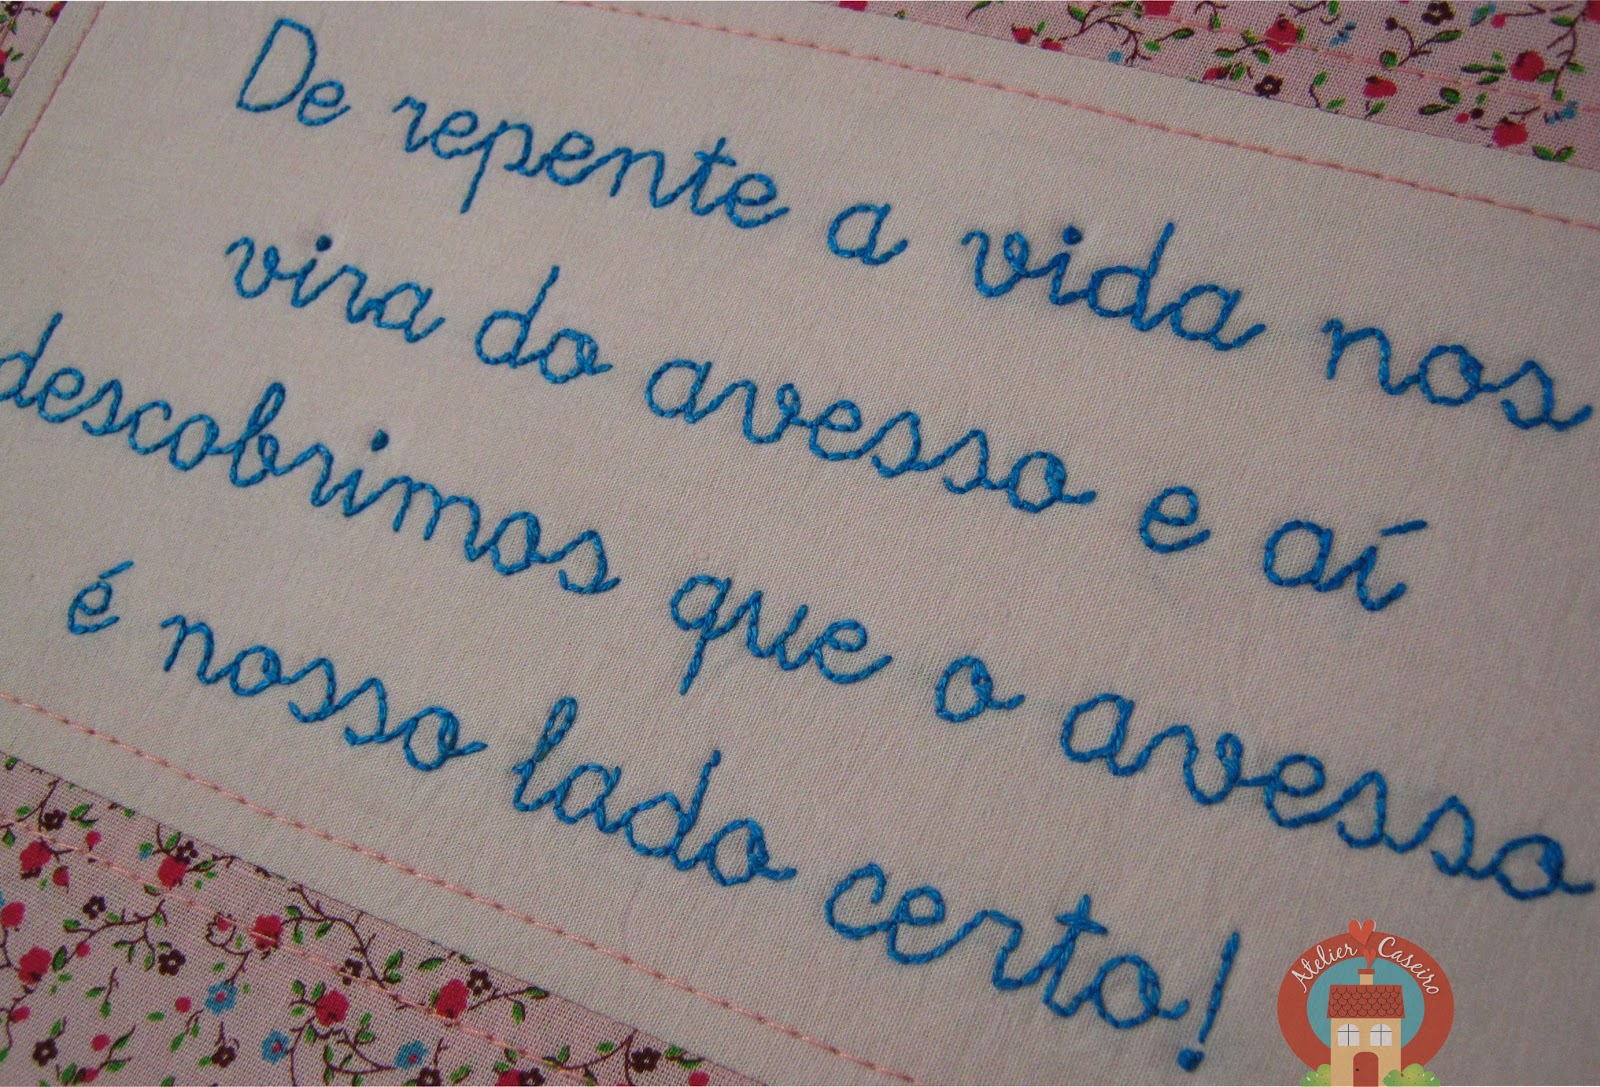 De repente a vida nos
vira do avesso e aí
descobrimos que o avesso
é nosso lado certo!
Atelier Caseiro